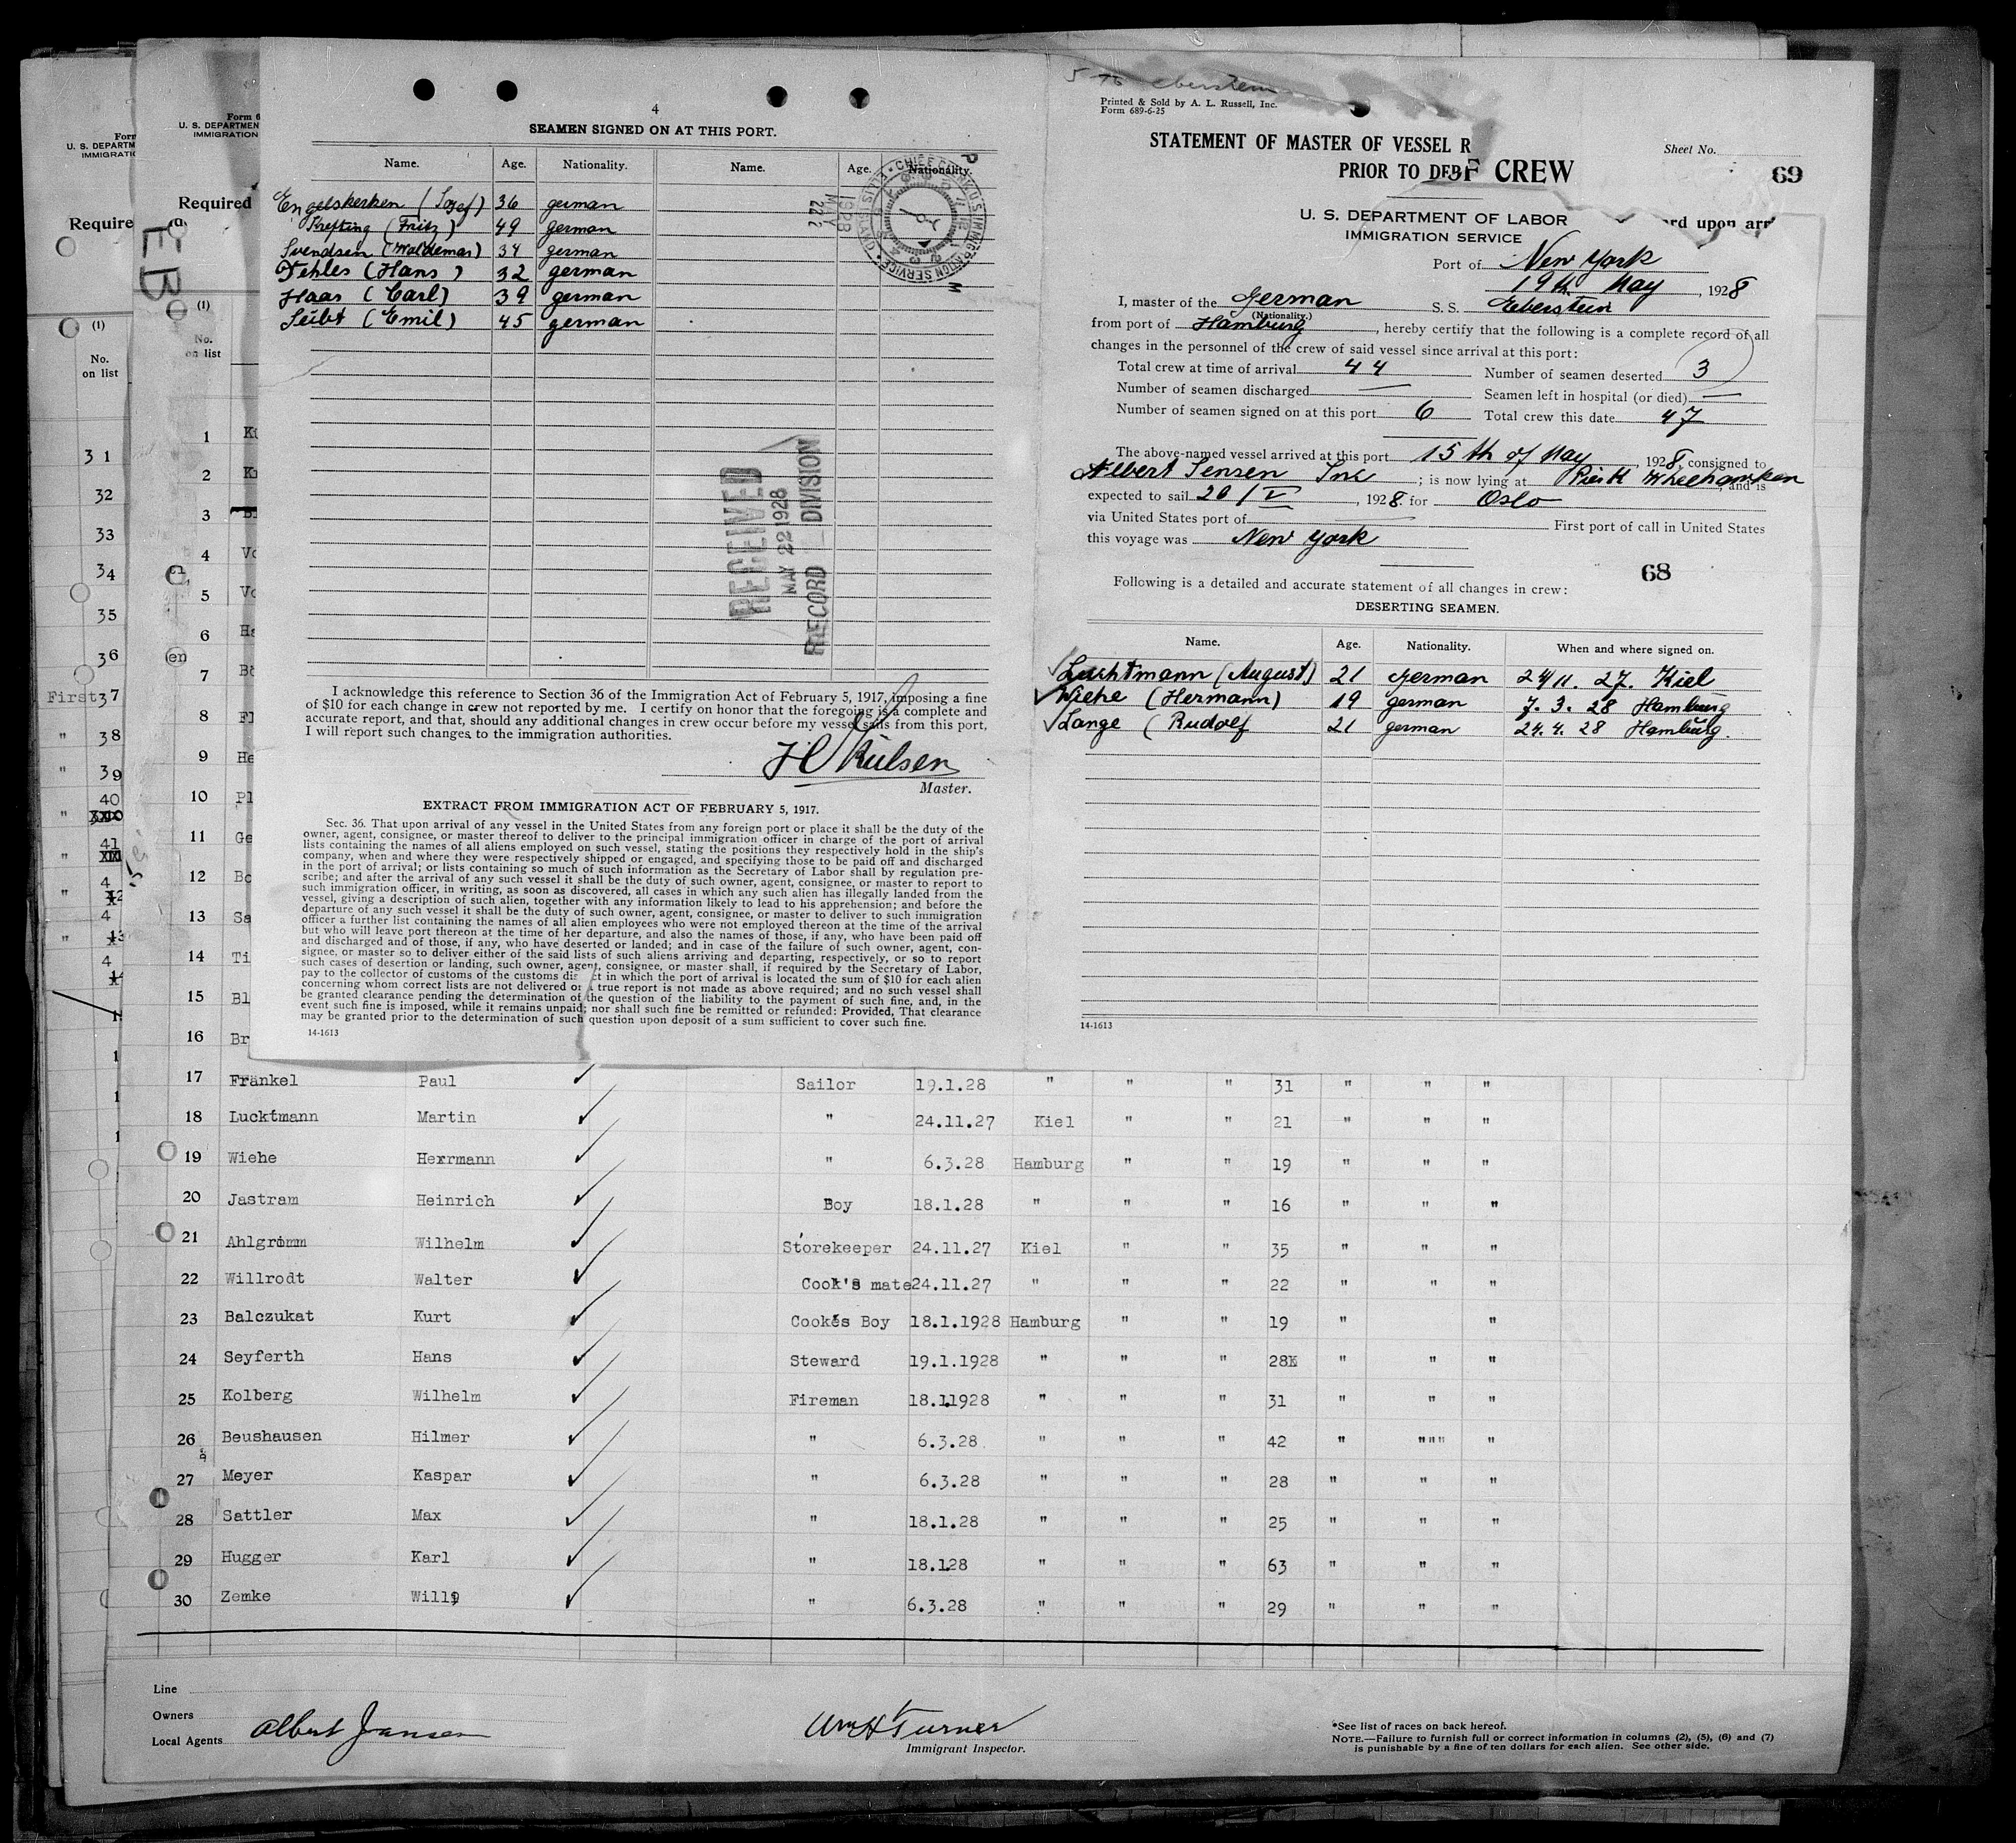 4
SEAMEN SIGNED ON AT THIS PORT.
Name. Age. Nationality. Name. Age. Nationality.
Engelskerken (Josef) 36 german
Krefting (Fritz) 49 german
Svendsen (Waldemar) 34 german
Fehles (Hans) 32 german
Haas (Carl) 39 german
Seibt (Emil) 45 german
CHIEF CLERK U.S. IMMIGRATION SERVICE ELLIS ISLAND
1928 MAY 22
RECEIVED
MAY 22 1928
RECORD DIVISION
I acknowledge this reference to Section 36 of the Immigration Act of February 5, 1917, imposing a fine
of $10 for each change in crew not reported by me. I certify on honor that the foregoing is a complete and
accurate report, and that, should any additional changes in crew occur before my vessel sails from this port,
I will report such changes to the immigration authorities.
Master.
EXTRACT FROM IMMIGRATION ACT OF FEBRUARY 5, 1917.
Sec. 36. That upon arrival of any vessel in the United States from any foreign port or place it shall be the duty of the
owner, agent, consignee, or master thereof to deliver to the principal immigration officer in charge of the port of arrival
lists containing the names of all aliens employed on such vessel, stating the positions they respectively hold in the ship's
company, when and where they were respectively shipped or engaged, and specifying those to be paid off and discharged
in the port of arrival; or lists containing so much of such information as the Secretary of Labor shall by regulation pre-
scribe; and after the arrival of any such vessel it shall be the duty of such owner, agent, consignee, or master to report to
such immigration officer, in writing, as soon as discovered, all cases in which any such alien has illegally landed from the
vessel, giving a description of such alien, together with any information likely to lead to his apprehension; and before the
departure of any such vessel it shall be the duty of such owner, agent, consignee, or master to deliver to such immigration
officer a further list containing the names of all alien employees who were not employed thereon at the time of the arrival
but who will leave port thereon at the time of her departure, and also the names of those, if any, who have been paid off
and discharged and of those, if any, who have deserted or landed; and in case of the failure of such owner, agent, con-
signee, or master so to deliver either of the said lists of such aliens arriving and departing, respectively, or so to report
such cases of desertion or landing, such owner, agent, consignee, or master shall, if required by the Secretary of Labor,
pay to the collector of customs of the customs dis ct in which the port of arrival is located the sum of $10 for each alien
concerning whom correct lists are not delivered or a true report is not made as above required; and no such vessel shall
be granted clearance pending the determination of the question of the liability to the payment of such fine, and, in the
event such fine is imposed, while it remains unpaid; nor shall such fine be remitted or refunded: Provided, That clearance
may be granted prior to the determination of such question upon deposit of a sum sufficient to cover such fine.
14-1613
Eberstein
Printed & Sold by A. L. Russell, Inc.
Form 689-6-25
STATEMENT OF MASTER OF VESSEL R
PRIOR TO DEP F CREW
Sheet No.
69
U. S. DEPARTMENT OF LABOR
IMMIGRATION SERVICE
rd upon arr
Port of New York
19th May, 1928
I, master of the German S. S. Eberstein
(Nationality.)
from port of Hamburg, hereby certify that the following is a complete record of all
changes in the personnel of the crew of said vessel since arrival at this port:
Total crew at time of arrival 44 Number of seamen deserted 3
Number of seamen discharged — Seamen left in hospital (or died) —
Number of seamen signed on at this port 6 Total crew this date 47
The above-named vessel arrived at this port 15th of May, 1928, consigned to
Albert Jensen Inc; is now lying at Wheehawken, and is
expected to sail 20/V, 1928 for Oslo
via United States port of — First port of call in United States
this voyage was New York
68
Following is a detailed and accurate statement of all changes in crew:
DESERTING SEAMEN.
Name. Age. Nationality. When and where signed on.
Luchtmann (August) 21 german 24/11. 27. Kiel
Wiehe (Hermann) 19 german 7. 3. 28 Hamburg
Lange (Rudolf 21 german 24. 4. 28 Hamburg.
14-1613
Form
U. S. DEPARTM
IMMIGRATIO
Require
(1)
No.
on list
31
32
33
34
35
36
First 37
" 38
" 39
40
41
Form 6
U. S. DEPARTMENT
IMMIGRATION
Required
(1)
No.
on list
1
2
3
4 Vo
5 Vo
6 Ha
7 Bö
8 Fl
9 He
10 Pl
11 Ge
12 Bo
13 Sa
14 Ti
15 Bl
16 Br
17 Fränkel Paul Sailor 19.1.28 " " " 31 " " "
18 Lucktmann Martin " 24.11.27 Kiel " " 21 " " "
19 Wiehe Herrmann " 6.3.28 Hamburg " " 19 " " "
20 Jastram Heinrich Boy 18.1.28 " " " 16 " " "
21 Ahlgrimm Wilhelm Storekeeper 24.11.27 Kiel " " 35 " " "
22 Willrodt Walter Cook's mate 24.11.27 " " " 22 " " "
23 Balczukat Kurt Cook's Boy 18.1.1928 Hamburg " " 19 " "
24 Seyferth Hans Steward 19.1.1928 " " " 28 " " "
25 Kolberg Wilhelm Fireman 18.1.1928 " " " 31 " " "
26 Beushausen Hilmer " 6.3.28 " " " 42 " """ "
27 Meyer Kaspar " 6.3.28 " " " 28 " " "
28 Sattler Max " 18.1.28 " " " 25 " " "
29 Hugger Karl " 18.1.28 " " " 63 " " "
30 Zemke Willy " 6.3.28 " " " 29 " " "
Line
Owners
Local Agents Albert Jansen
Wm H Turner
Immigrant Inspector.
*See list of races on back hereof.
NOTE.—Failure to furnish full or correct information in columns (2), (5), (6) and (7)
is punishable by a fine of ten dollars for each alien. See other side.